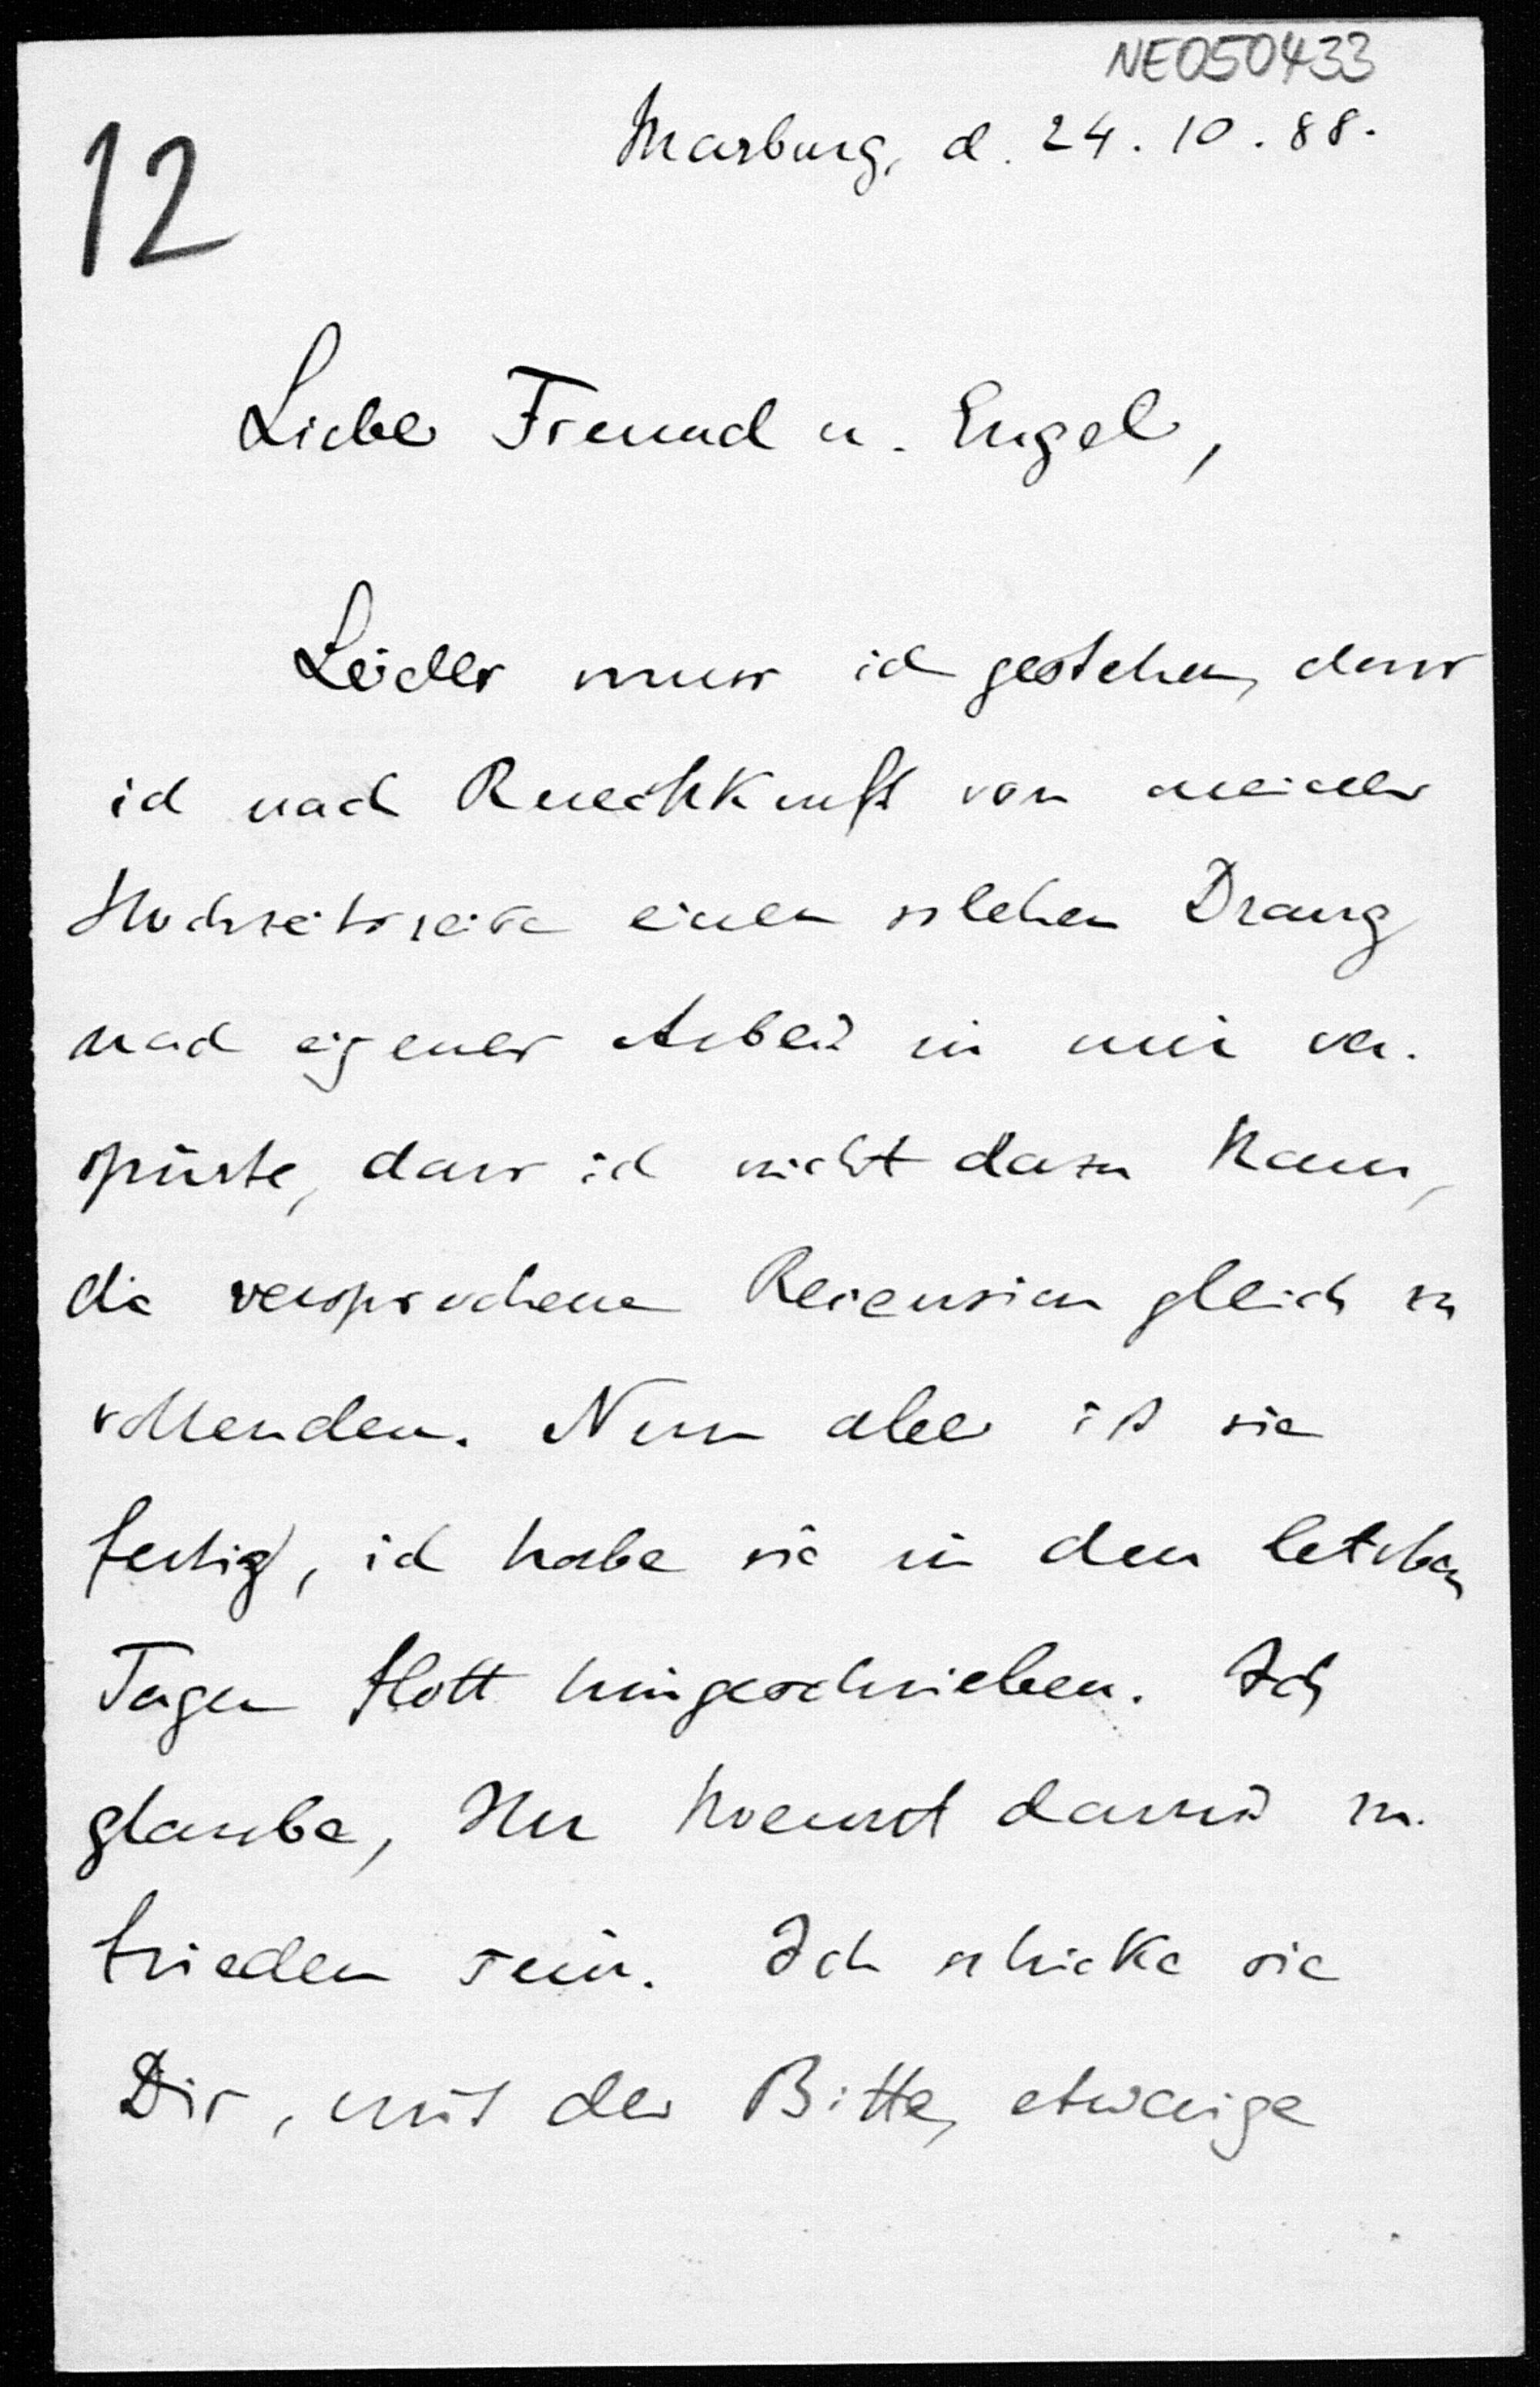 NE050433
12
Marburg, d. 24. 10. 88.
Lieber Freund u. Engel,
Leider muss ich gestehen, dass
ich nach Rueckkunft von meiner
Hochzeitsreise einen solchen Drang
nach eigener Arbeit in mir ver-
spürte, dass ich nicht dazu kam,
die versprochene Recension gleich zu
vollenden. Nun aber ist sie
fertig, ich habe sie in den letzten
Tagen flott hingeschrieben. Ich
glaube, Ihr koennt damit zu-
frieden sein. Ich schicke sie
Dir, mit der Bitte, etwaige